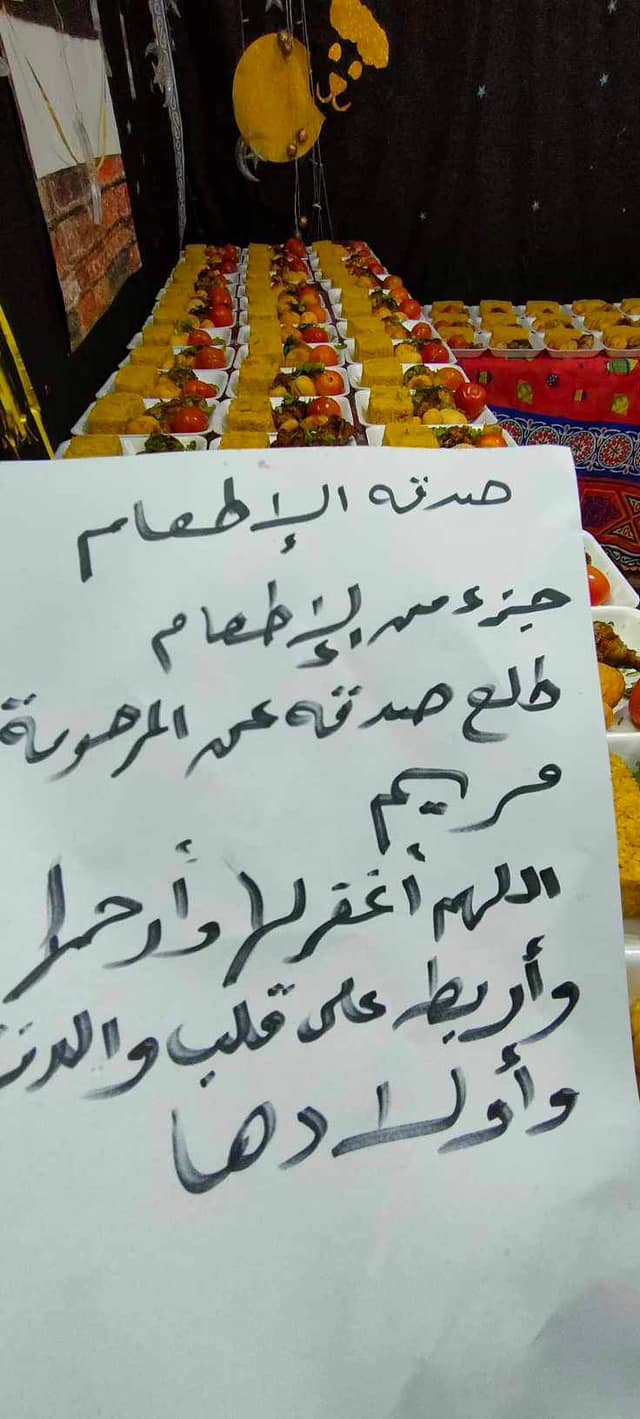 صدقه الإطعام
جزء من الإطعام
طلع صدقه عن المرحومة
مريم
اللهم أغفر لها وأرحمها
وأربط على قلب والدت
وأولادها